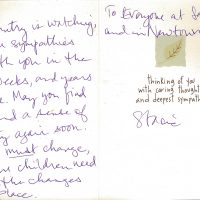 ntry is watching,
sympathies
th you in the
eeks, and years
e. May you find
nd a sense of
ty again soon.
must change,
children need
the changes
lace.
To Everyone at Sa
and in Newtown
thinking of you
with caring thought
and deepest sympat
Stacie